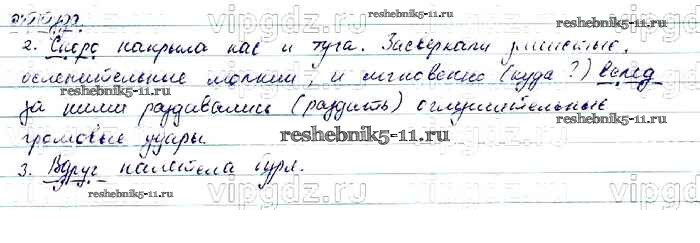 2. Скоро накрыла нас и туча. Засверкали змеистые,
ослепительные молнии, и мгновенно (куда?) вслед
за ними раздавались (раздать) оглушительные
громовые удары.
3. Вдруг налетела буря.
reshebnik5-11.ru
reshebnik5-11.ru
reshebnik5-11.ru
reshebnik5-11.ru
vipgdz.ru
vipgdz.ru
vipgdz.ru
vipgdz.ru
vipgdz.ru
vipgdz.ru